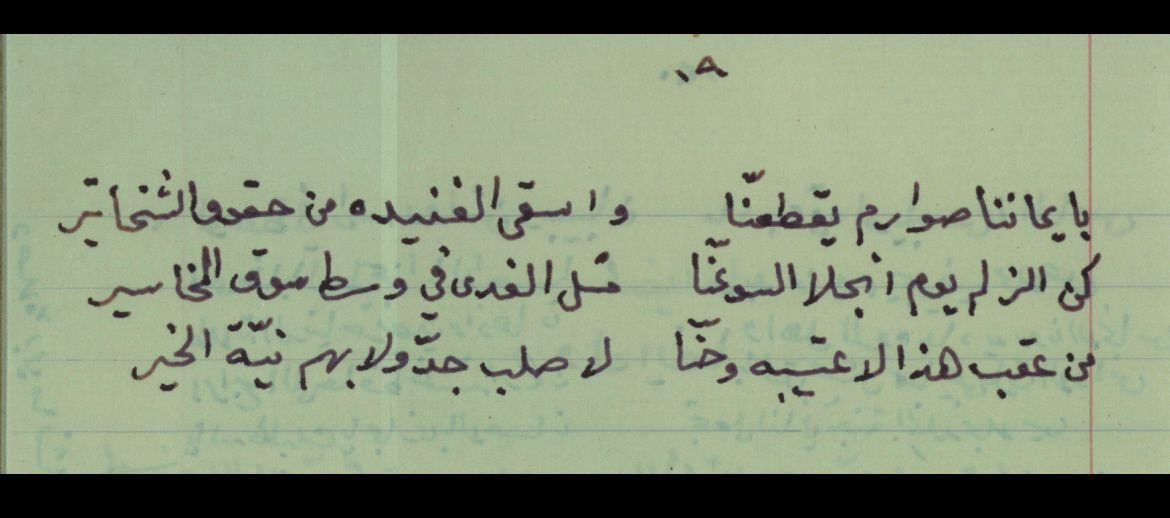 ٨٠
بايماننا صوارم يقطعنّا واسقى الغنيده من حقوق الشخاتير
كن الزلم يوم انجلا السوعنّا قبل الغدى في وسط سوق المخاسير
من عقب هذا لا عتيبه وحنّا لا صلب جدّ ولا بهم نيّة الخير